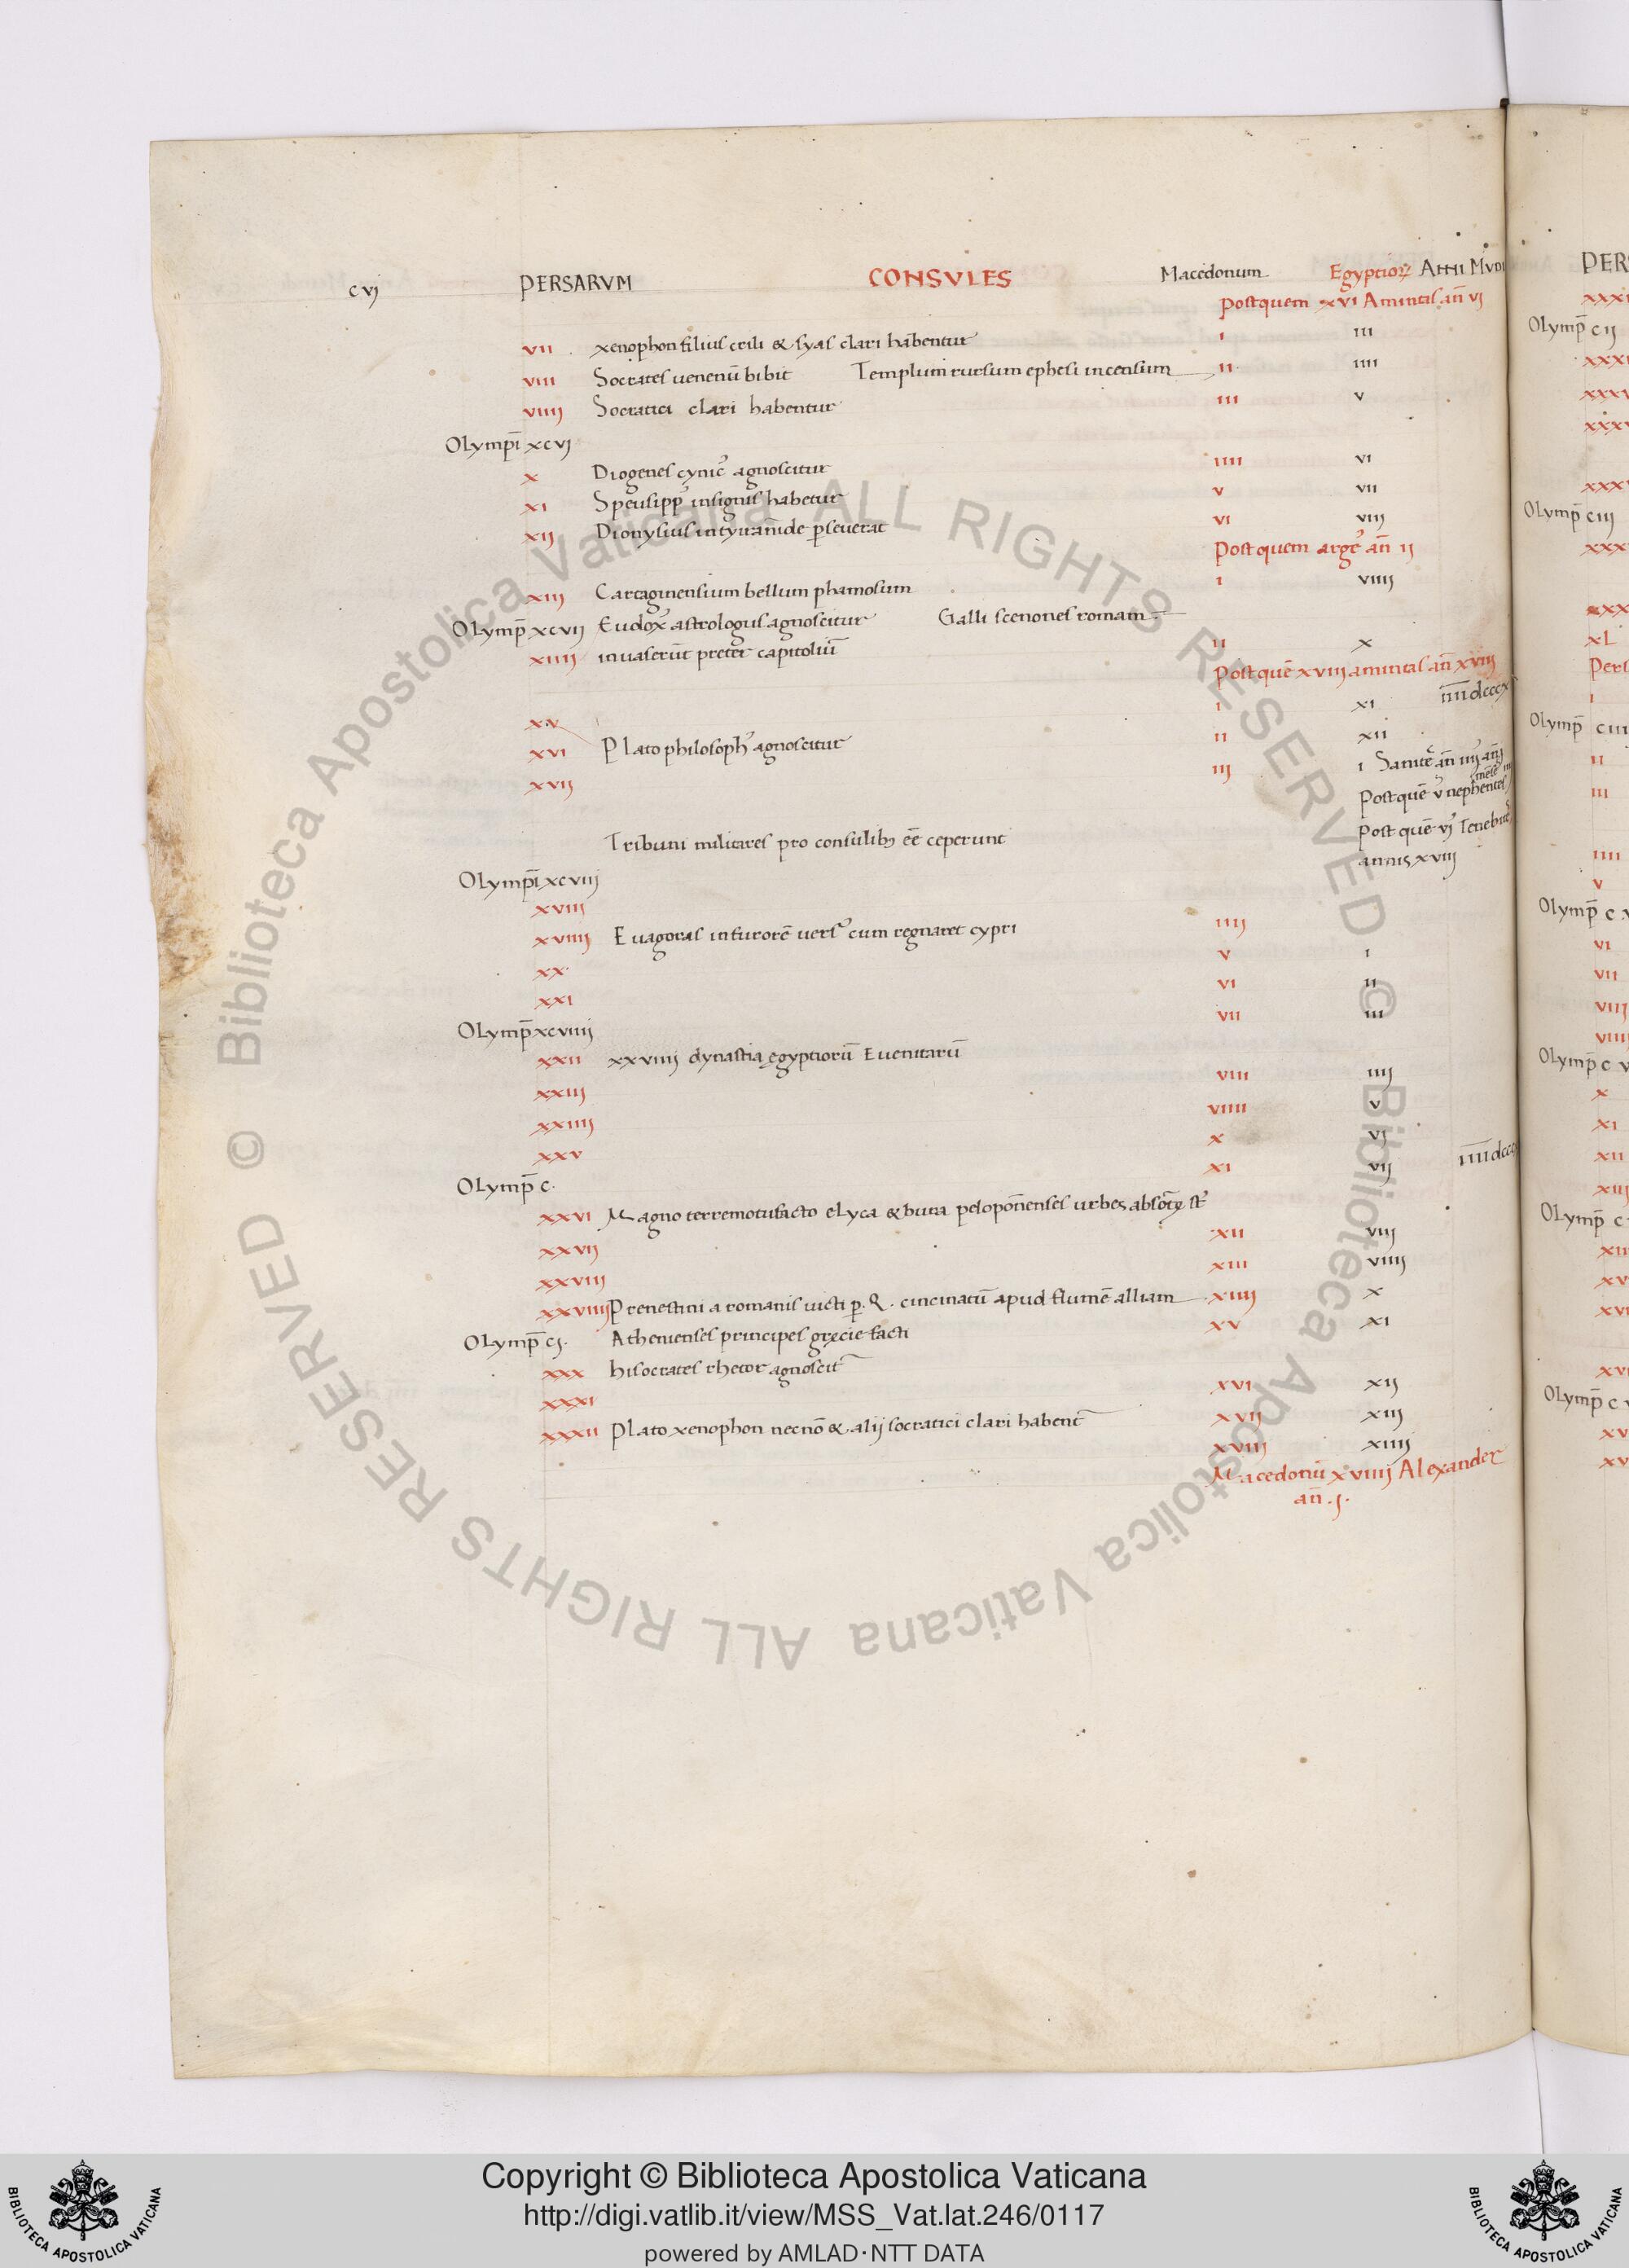 cvj PERSARVM CONSVLES Macedonum Egyptior̄ Anni Mvndi
postquem xvi Amintas an̄ vj
vii xenophon filius crili & syas clari habentur i iii
viii Socrates uenenū bibit Templum rursum ephesi incensum ii iiii
viiij Socratici clari habentur iii v
Olymp̄i xcvj
x Diogenes cynic᾽ agnoscitur iiii vi
xi Speusipp᾽ insignis habetur v vii
xij Dionysius in tyrannide perseuerat vi viij
Post quem arge᾽ an̄ ij
xiij Cartaginensium bellum phamosum i viiij
Olymp̄ xcvij Eudox᾽ astrologus agnoscitur Galli scenones romam
xiiij inuaserūt preter capitoliū ii x
Post quē xviij amintas an̄ xviij
iiiidccc
xv i xi
xvi Plato philosoph᾽ agnoscitur ii xii
xvij iij i
Post quē v nephentes
Tribuni militares pro consulib; eē ceperunt Post quē vj
annis xviij
Olymp̄i xcviij
xviij
xviiij Euagoras in furorē uers᾽ cum regnaret cypri iiij
xx v i
xxi vi ii
Olymp̄ xcviiij vii iii
xxii xxviiij dynastia ęgyptiorū Euenitarū viii iiij
xxiij viiii v
xxiiij x vj
xxv xi vij iiiidccc
Olymp̄ c.
xxvi Magno terremotu facto elyca & bura peloponenses urbes absorte st᾽ xii viij
xxvij xiii viiij
xxviij
xxviiij Prenestini a romanis uicti p. Q. cincinatū apud flumē alliam xiiij x
Olymp̄ cj. Athenienses principes gręcie facti xv xi
xxx hisocrates rhetor agnoscit᾽
xxxi xvi xij
xxxii Plato xenophon necnō & alij socratici clari habent᾽ xvii xiij
xviij xiiij
Macedoniū xviiij Alexander
an̄ .j.
PER
Olymp̄ cij
Olymp̄ ciij
xL
Pers
i
Olymp̄ ciii
ii
iii
iiii
v
Olymp̄ c v
vi
vii
viij
viiij
Olymp̄ c v
x
xi
xii
xiij
Olymp̄ c
Olymp̄ c v
© Biblioteca Apostolica Vaticana ALL RIGHTS RESERVED © Biblioteca Apostolica Vaticana ALL RIGHTS RESERVED
Copyright © Biblioteca Apostolica Vaticana
http://digi.vatlib.it/view/MSS_Vat.lat.246/0117
powered by AMLAD·NTT DATA
BIBLIOTECA APOSTOLICA VATICANA
BIBLIOTECA APOSTOLICA VATICANA